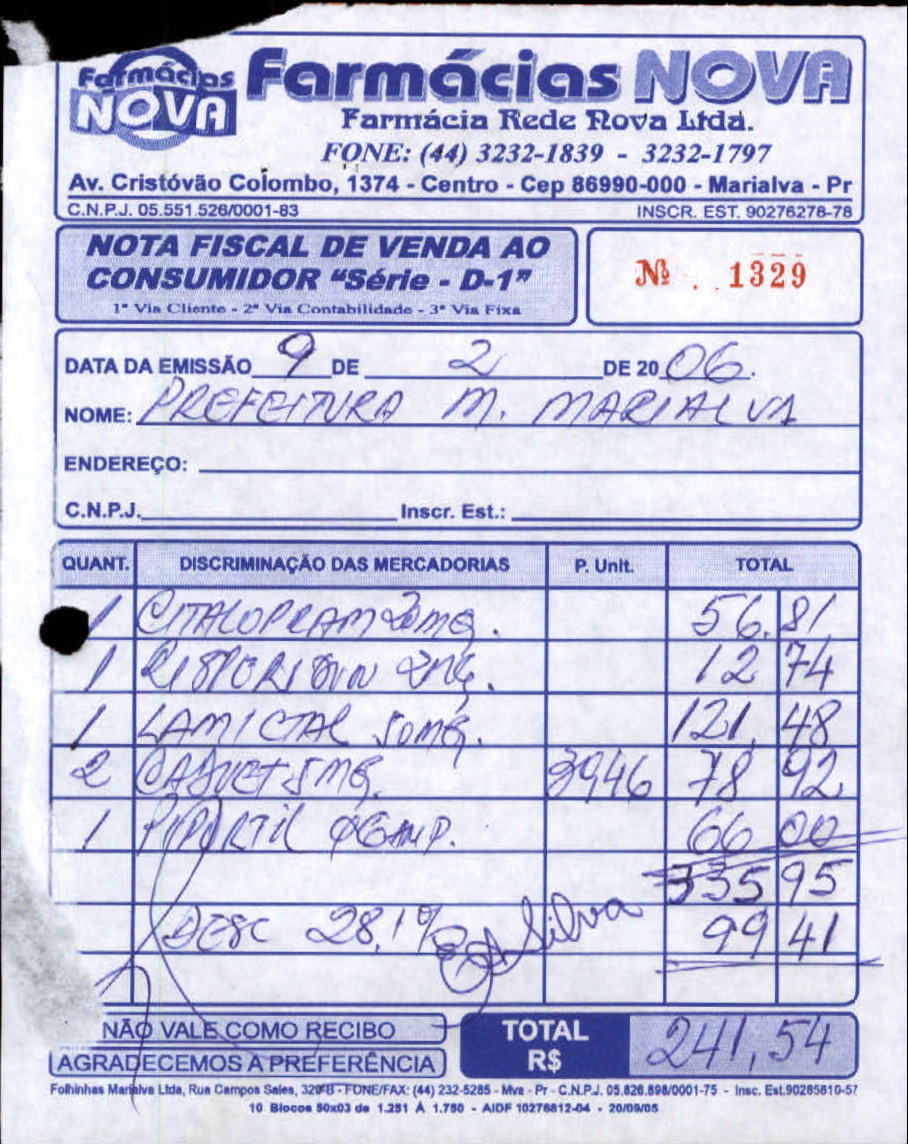 Farmácias NOVA
Farmácias NOVA
Farmácia Rede Nova Ltda.
FONE: (44) 3232-1839 - 3232-1797
Av. Cristóvão Colombo, 1374 - Centro - Cep 86990-000 - Marialva - Pr
C.N.P.J. 05.551.526/0001-83 INSCR. EST. 90276278-78
NOTA FISCAL DE VENDA AO
CONSUMIDOR "Série - D-1"
1ª Via Cliente - 2ª Via Contabilidade - 3ª Via Fixa
Nº 1329
DATA DA EMISSÃO 9 DE 2 DE 20 06.
NOME: PREFEITURA M. MARIALVA
ENDEREÇO:
C.N.P.J. Inscr. Est.:
QUANT. DISCRIMINAÇÃO DAS MERCADORIAS P. Unit. TOTAL
1 CITALOPRAM 20mg. 56,81
1 12 74
1 LAMICTAL 50mg. 121, 48
2 5mg. 3946 78 92
1 PIPORTIL 66 00
335 95
DESC 28,1% Silva 99 41
NÃO VALE COMO RECIBO
AGRADECEMOS A PREFERÊNCIA
TOTAL R$ 241,54
Folhinhas Marialva Ltda, Rua Campos Sales, 329-B - FONE/FAX: (44) 232-5285 - Mva - Pr - C.N.P.J. 05.826.898/0001-75 - Insc. Est.90285810-57
10 Blocos 50x03 de 1.251 À 1.750 - AIDF 10276812-04 - 20/09/05